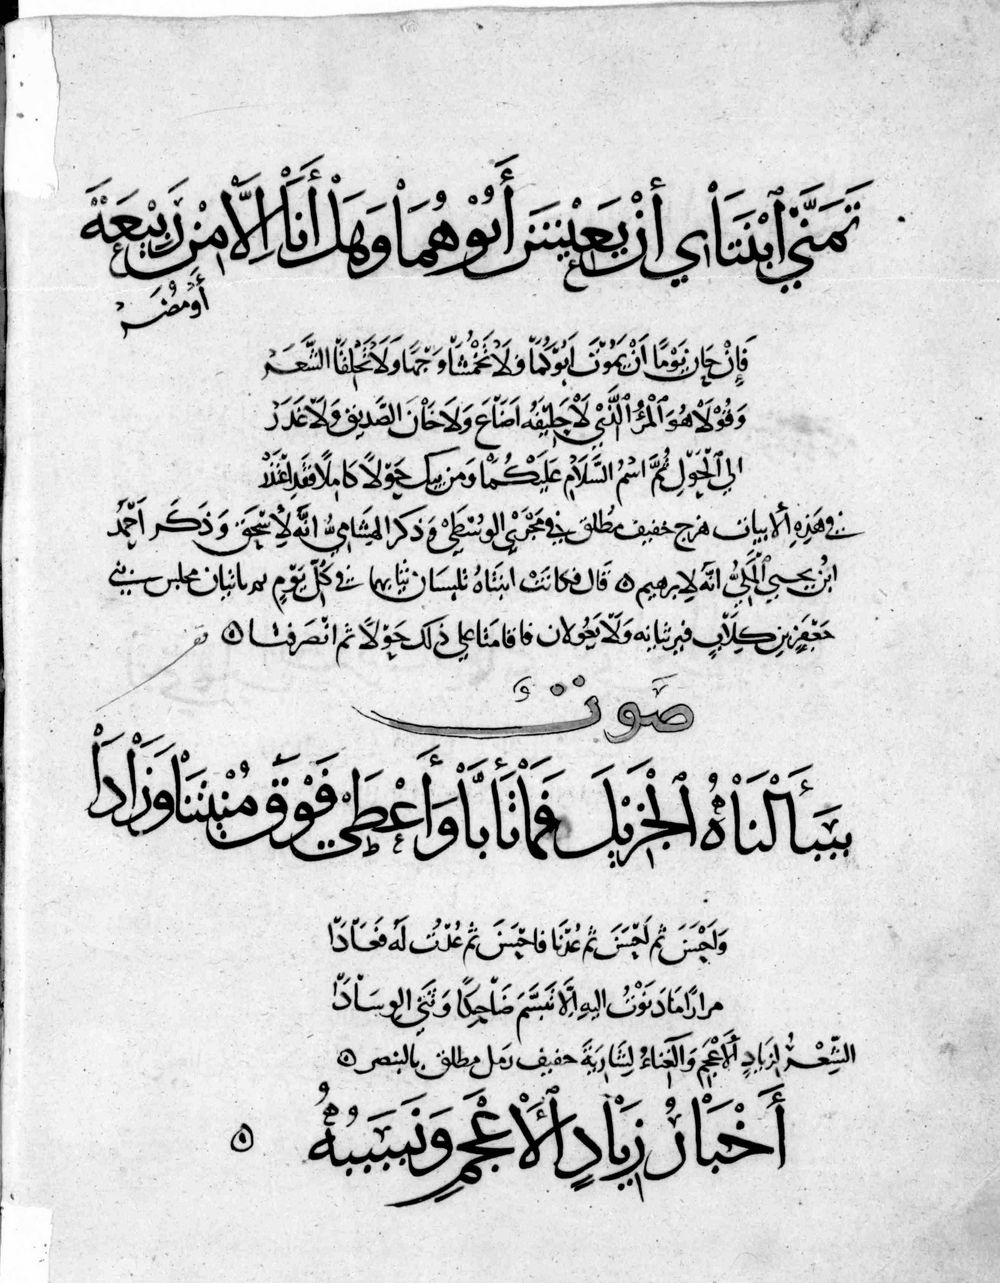 تَمَنَّى ٱبْنَتَاي أَنْ يَعِيْشَ أَبُوْهُمَا وَهَلْ أَنَا إِلَّا مِنْ رَبِيْعَةَ
أَوْ مُضَرْ
فَإِنْ حَانَ يَوْمًا أَنْ يَمُوْتَ أَبُوْكُمَا وَلَا تَخْمُشَا وَجْهًا وَلَا تَحْلِقَا الشَّعَرْ
وَقُوْلَا هُوَ ٱلْمَرْءُ ٱلَّذِيْ لَا حَلِيْفَهُ اضَاعَ وَلَا خَانَ الصَّدِيقَ وَلَا غَدَرْ
الى ٱلْحَوْلِ ثُمَّ اسْمُ السَّلَامِ عَلَيْكُمَا وَمَن يبك حَوْلًا كَامِلًا فَقَدِ اعْتَذَرْ
في هَذِهِ ٱلابيات هزج خفيف مطلق في مَجْرَى الوُسْطَى وَذكر الهشامي انَّهُ لِاسْحق وَذَكَر احْمَدُ
ابْن يحيى ٱلْمَكِّيُّ انّه لابرهيم ٥ قَال فكانَتْ ابنتاهُ تلبسان ثيابهما في كُلِّ يَوْمٍ ثم تاتيان مجلس بني
جَعْفَرِ بنِ كِلَابٍ فيرثيانه وَلَا يعولان فاقامتا على ذلك حَوْلًا ثم انْصَرفتا ٥
صَوتٌ
سَأَلْنَاهُ ٱلْجَزِيْلَ فَمَا تَأَبَّا وَأَعْطَى فَوْقَ مُنْيَتِنَا وَزَادَا
وَاحْسَنَ ثم احْسَنَ ثم عُدْنَا فاحْسَنَ ثم عُدْتُ لَهُ فَعَادَا
مرارًا مَا دَنَوْتُ اليهِ الَّا تَبَسَّمَ ضَاحِكًا وَثَنَى الوِسَادَا
الشِّعْرُ لزيَادٍ ٱلاعْجَمِ وَٱلغناءُ لِشَارِيَةَ خفيف رَمل مطلق بالبنصر ٥
أَخْبَارُ زِيَادٍ ٱلْأَعْجَمِ وَنَسَبُهُ ٥